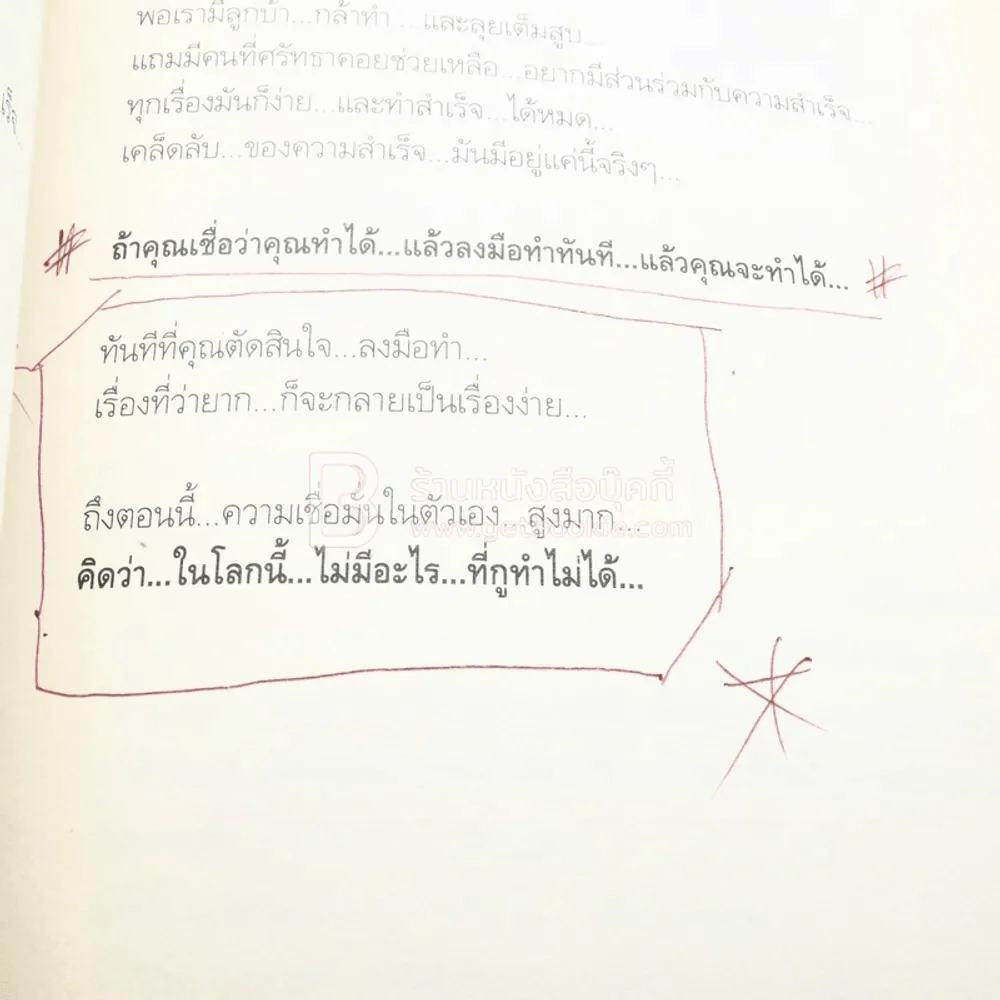 พอเรามีลูกบ้า...กล้าทำ...และลุยเต็มสูบ...
แถมมีคนที่ศรัทธาคอยช่วยเหลือ...อยากมีส่วนร่วมกับความสำเร็จ...
ทุกเรื่องมันก็ง่าย...และทำสำเร็จ...ได้หมด...
เคล็ดลับ...ของความสำเร็จ...มันมีอยู่แค่นี้จริงๆ...
# ถ้าคุณเชื่อว่าคุณทำได้...แล้วลงมือทำทันที...แล้วคุณจะทำได้... #
ทันทีที่คุณตัดสินใจ...ลงมือทำ...
เรื่องที่ว่ายาก...ก็จะกลายเป็นเรื่องง่าย...
ร้านหนังสือบุ๊คกี้
www.getbookie.com
ถึงตอนนี้...ความเชื่อมั่นในตัวเอง...สูงมาก...
คิดว่า...ในโลกนี้...ไม่มีอะไร...ที่กูทำไม่ได้...